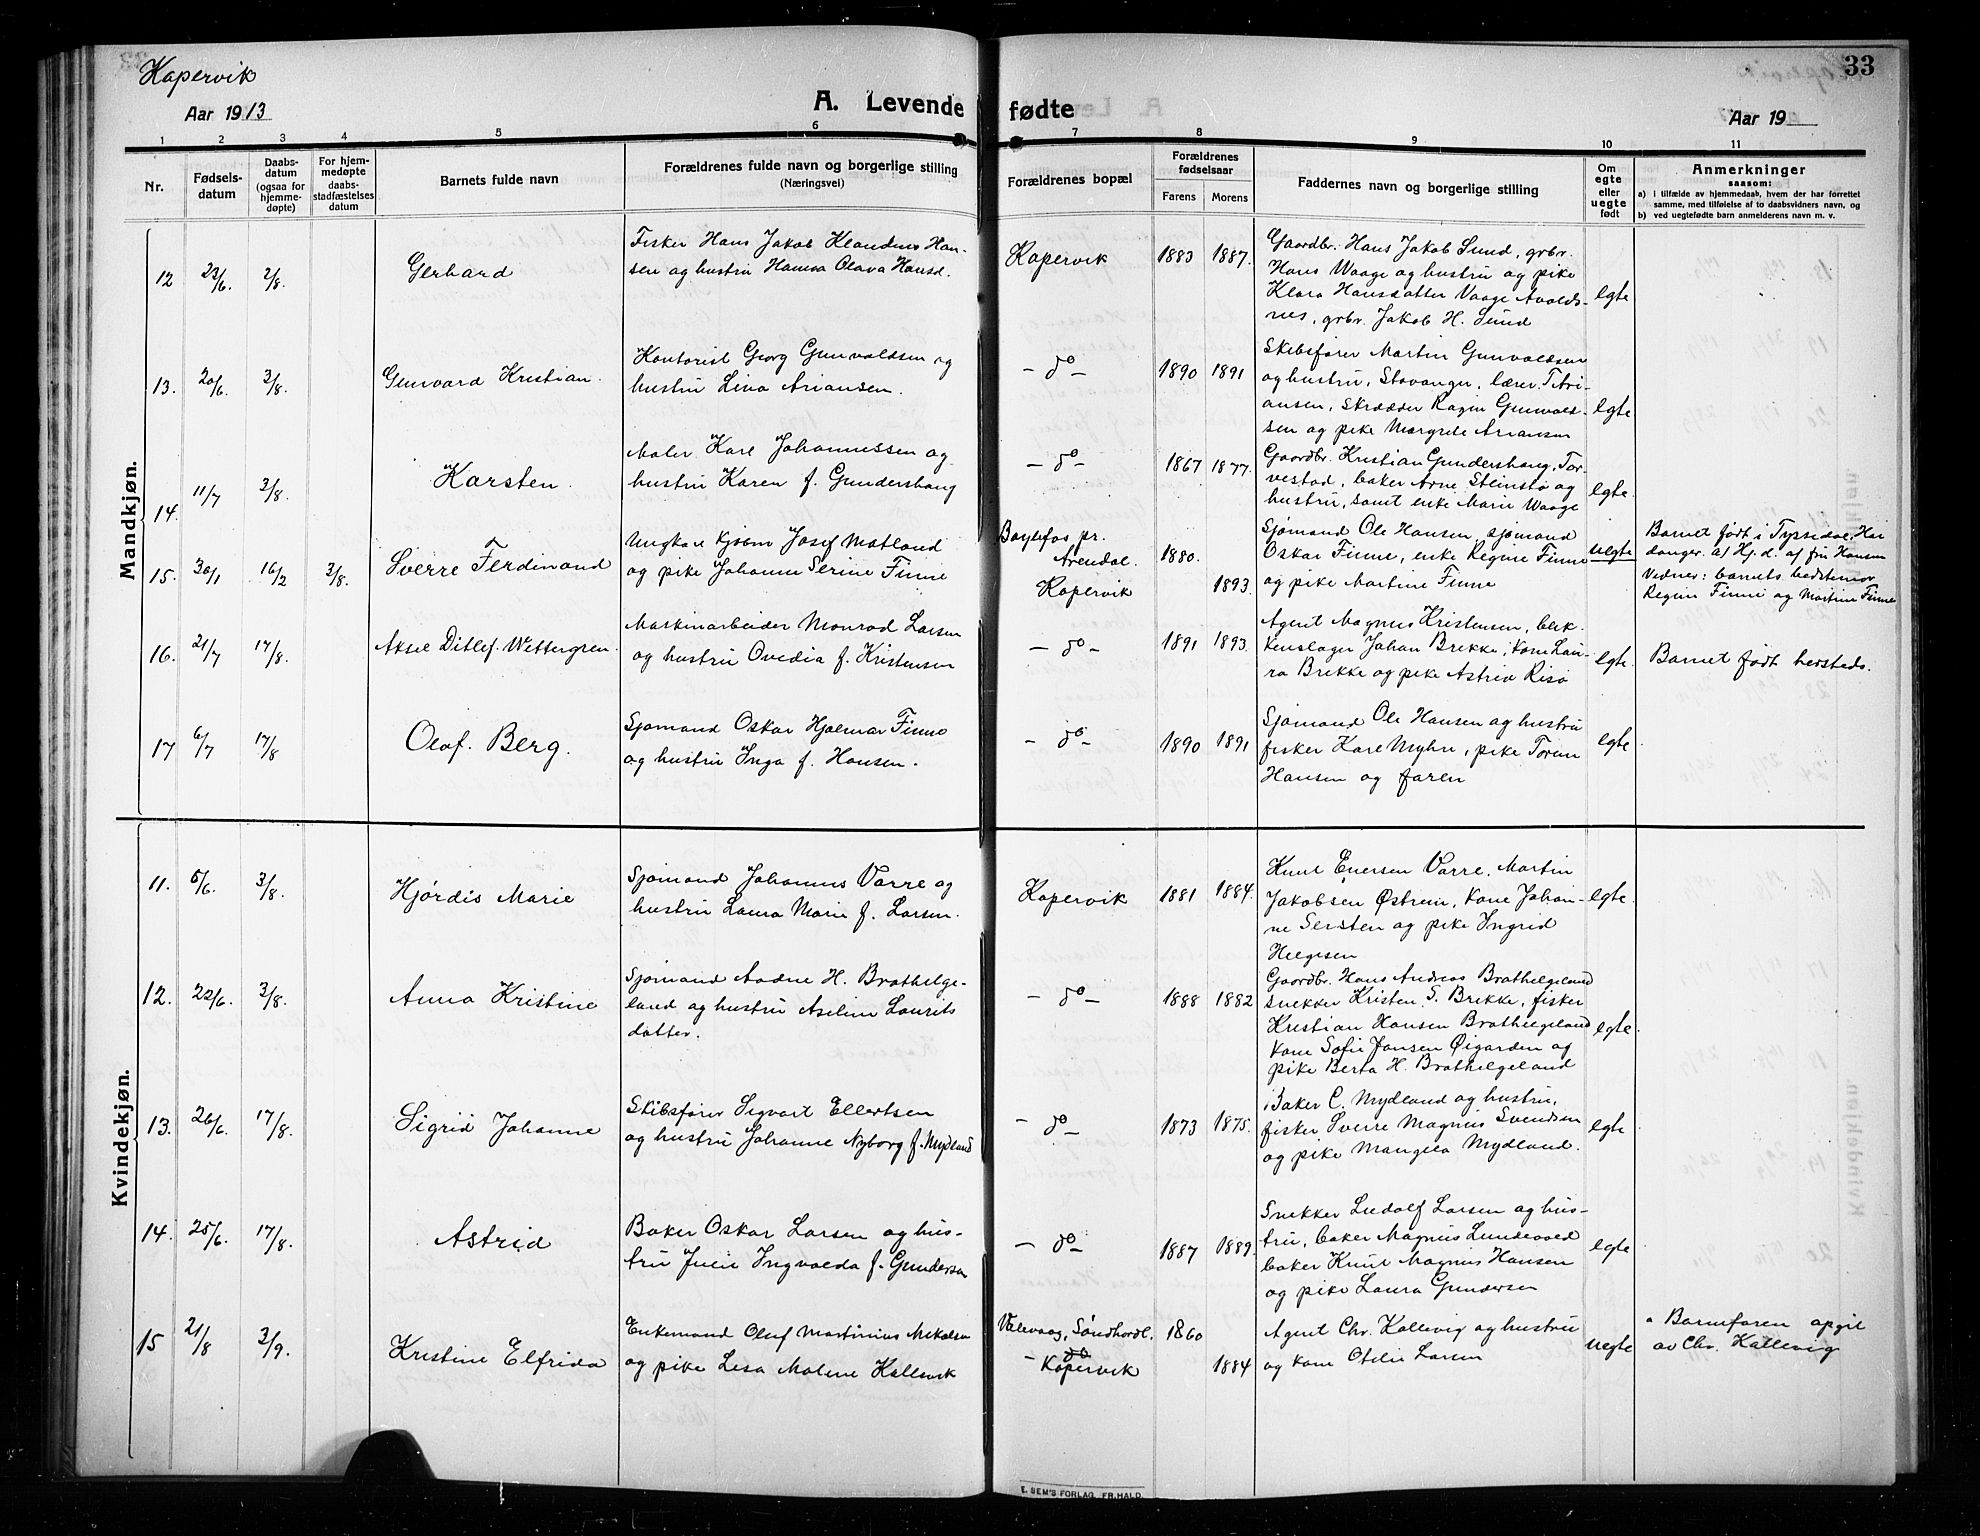 Kopervik
33
Aar 1913
A. Levende fødte
Aar 19
1 2 3 4 5 6 7 8 9 10 11
Nr.
Fødsels-
datum
Daabs-
datum
(ogsaa for
hjemme-
døpte)
For hjem-
medøpte
daabs-
stadfæstelses
datum
Barnets fulde navn
Forældrenes fulde navn og borgerlige stilling
(Næringsvei)
Forældrenes bopæl
Forældrenes
fødselsaar
Farens Morens
Faddernes navn og borgerlige stilling
Om
egte
eller
uegte
født
Anmerkninger
saasom:
a) i tilfælde av hjemmedaab, hvem der har forrettet
samme, med tilføielse af to daabsvidners navn, og
b) ved uegtefødte barn anmelderens navn m. v.
Mandkjøn.
12 22/6. 2/8. Gerhard
Fisker Hans Jakob Klaudius Han-
sen og hustru Hansa Olava Hansd.
Kopervik 1883 1887.
Gaardbr. Hans Jakob Sund, grbr.
Hans Waage og hustru og pike
Klara Hansdatter Vaage Avalds-
nes, grbr. Jakob H. Sund
egte
13. 20/6. 3/8. Gunvard Kristian.
Kontorist Georg Gunvaldsen og
hustru Lina Ariansen.
- do - 1890 1891
Skibsfører Martin Gunvaldsen
og hustru, Stavanger, lærer T. Ari-
ansen, skrædder Ragin Gunvald-
sen og pike Margrete Ariansen
egte
14. 11/7 3/8. Karsten.
Maler Karl Johannessen og
hustru Karen f. Gundershaug
- do - 1867 1877.
Gaardbr. Kristian Gundershaug, Tor-
vestad, baker Arne Steinstø og
hustru, samt enke Marie Waage
egte.
15. 30/1 16/2 3/8. Sverre Ferdinand
Ungkar Josef Matland
og pike Johanne Serine Finne
Bøylefos pr.
Arendal.
Kopervik
1880.
1893.
Sjømand Ole Hansen, sjømand
Oskar Finne, enke Regine Finne
og pike Martine Finne
uegte
Barnet født i Tyssedal, Har
danger. Hj. d. af fru Hansen
Vidner: barnets bedstemor
Regine Finne og Martine Finne
16. 21/7 17/8. Aksel Ditlef. Wettergren.
Maskinarbeider Monrad Larsen
og hustru Ovedia f. Kristensen
- do - 1891 1893.
Agent Magnus Kristensen, blik-
kenslager Johan Brekke, kone Lau-
ra Brekke og pike Astrid Risø
egte.
Barnet født hersteds.
17 6/7 17/8 Olaf. Berg.
Sjømand Oskar Hjalmar Finne
og hustru Inga f. Hansen.
- do - 1890 1891
Sjømand Ole Hansen og hustru
fisker Karl Myhre, pike Torine
Hansen og faren
egte
Kvindekjøn.
11. 5/6. 3/8. Hjørdis Marie
Sjømand Johannes Varre og
hustru Laura Marie f. Larsen.
Kopervik 1881 1884.
Knut Enersen Varre, Martin
Jakobsen Østrem, kone Johan-
ne Sersten og pike Ingrid
Helgesen
egte.
12. 22/6. 3/8. Anna Kristine
Sjømand Aadne H. Brathelge-
land og hustru Aseline Laurits
datter.
- do - 1888 1882
Gaardbr. Hans Andreas Brathelgeland
snekker Kristen S. Brekke, fisker
Kristian Hansen Brathelgeland
kone Sofie Jansen Øigarden og
pike Berta H. Brathelgeland
egte.
13. 26/6. 17/8. Sigrid Johanne
Skibsfører Sigvart Ellertsen
og hustru Johanne Nyborg f. Mydland
- do - 1873 1875.
Baker C. Mydland og hustru,
fisker Sverre Magnus Svendsen
og pike Mangela Mydland.
egte
14. 25/6. 17/8. Astrid
Baker Oskar Larsen og hus-
tru Julie Ingvalda f. Gundersen
- do - 1887 1889.
Snekker Ludolf Larsen og hus-
tru, baker Magnus Lundevold
baker Knut Magnus Hansen
og pike Laura Gundersen
egte
15 21/8 3/9. Kristine Elfrida
Enkemand Oluf Martinius Mikalsen
og pike Lesa Malene Kallevik
Valevaag, Søndhordl.
- do
Kopervik
1860
1884
Agent Chr. Kallevig og hustru
og kone Otelie Larsen
uegte
Barnefaren opgit
av Chr. Kallevig
E. SEM'S FORLAG, FR.HALD.